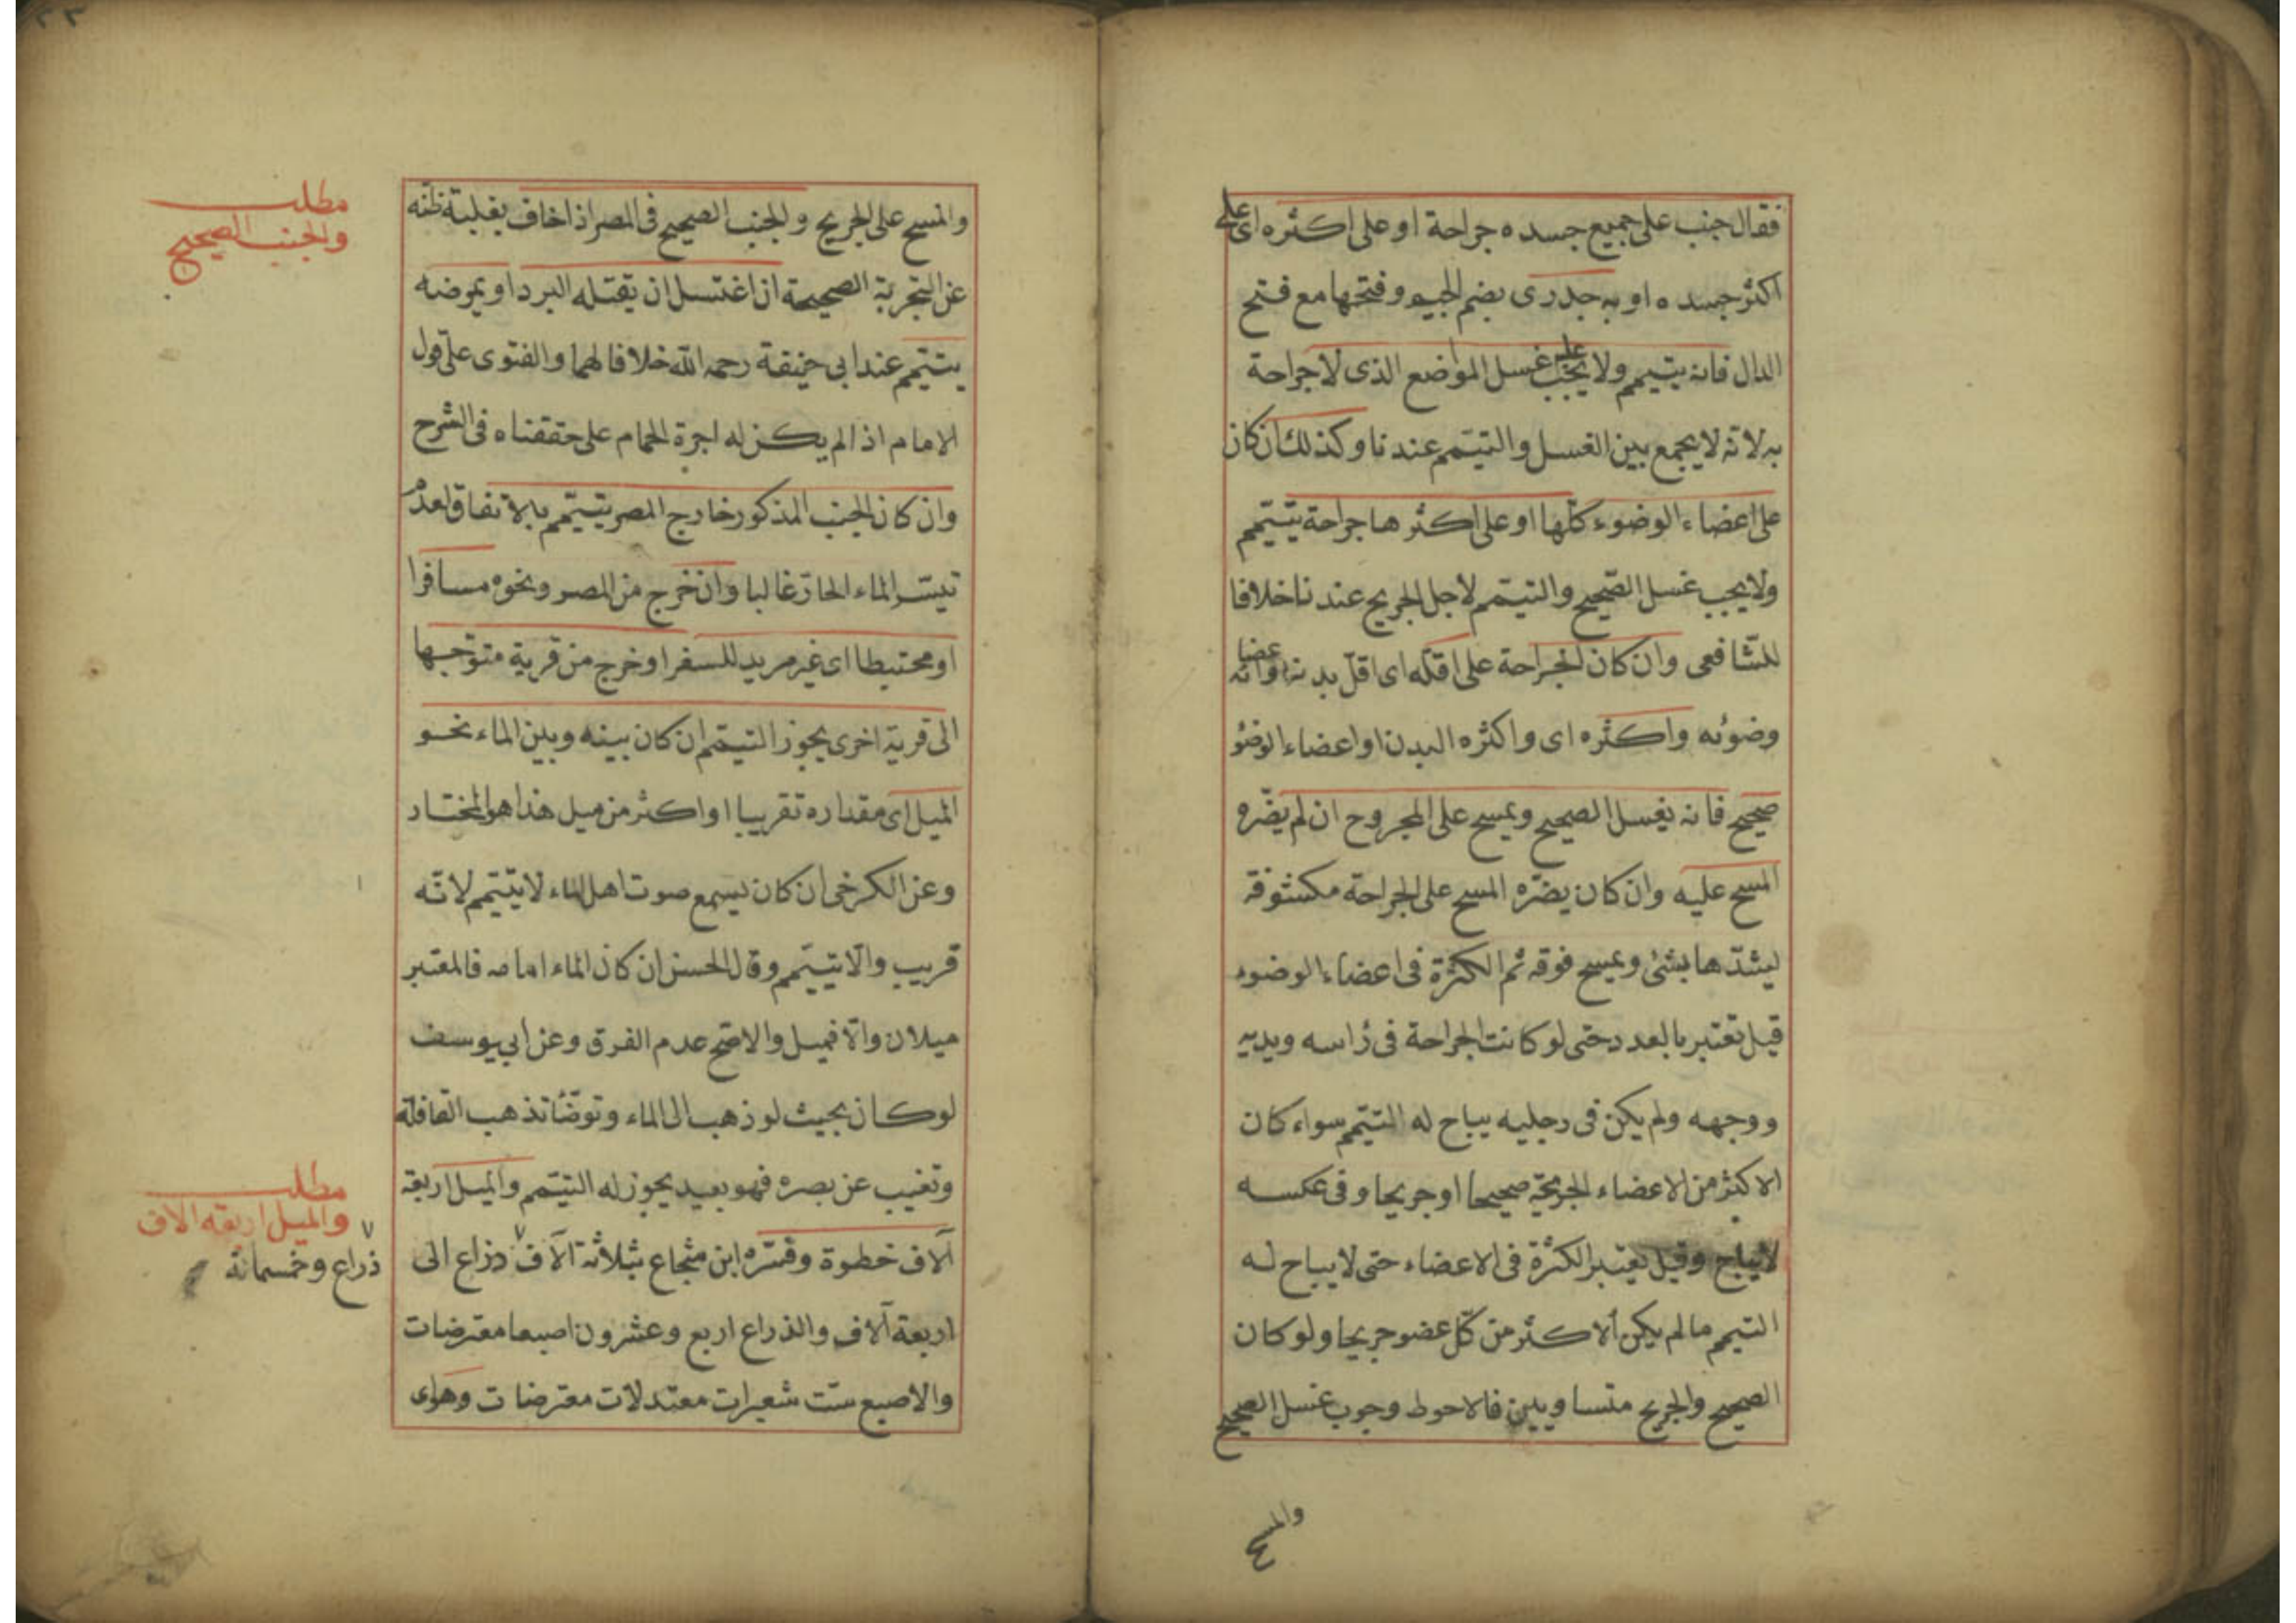 فقال جنب على جميع جسده جراحة او على اكثره اى على
اكثر جسده او به جدرى بضم الجيم وفتحها مع فتح
الدال فانه يتيمم ولا يجب عليه غسل المواضع الذى لا جراحة
به لانه لا يجمع بين الغسل والتيمم عندنا وكذلك ان كان
على اعضاء الوضوء كلّها او على اكثرها جراحة يتيمّم
ولا يجب غسل الصّحيح والتيمّم لاجل الجريح عندنا خلافا
للشّافعى وان كان الجراحة على اقلّه اى اقلّ بدنه او اعضا
وضوئه واكثره اى واكثره البدن او اعضاء الوضو
صحيح فانه يغسل الصحيح ويمسح على المجروح ان لم يضّره
المسح عليه وان كان يضرّه المسح على الجراحة مكشوفة
ليشدّها بشئ ويمسح فوقه ثم الكثرة فى اعضاء الوضوء
قيل تعتبر بالعدد حتى لو كانت الجراحة فى رأسه ويديه
ووجهه ولم يكن فى رجليه يباح له التيمّم سواء كان
الاكثر من الاعضاء الجريحة صحيحا او جريحا وفى عكسه
لا يباح وقيل يعتبر الكثرة فى الاعضاء حتى لا يباح له
التيمم ما لم يكن الاكثر من كلّ عضو جريحا ولو كان
الصحيح والجريح متساويين فالاحوط وجوب غسل الصحيح
والمسح
٢٣
والمسح على الجريح والجنب الصحيح فى المصر اذا خاف بغلبة ظنّه
عن التجربة الصحيحة ان اغتسل ان يقتله البرد او يمرضه
يتيمّم عند ابى حنيفة رحمه الله خلافا لهما والفتوى على قول
الامام اذا لم يكن له اجرة الحمام على حققناه فى الشرح
وان كان الجنب المذكور خارج المصر يتيمّم بالاتفاق لعدم
تيسّر الماء الحارّ غالبا وان خرج من المصر ونحوه مسافرا
او محتيطا اى غير مريد للسفر او خرج من قرية متوجها
الى قرية اخرى يجوز التيمّم ان كان بينه وبين الماء نحو
الميل اى مقداره تقريبا او اكثر من ميل هذا هو المختار
وعن الكرخى ان كان يسمع صوت اهل الماء لا يتيمّم لانّه
قريب والّا يتيمّم وقال الحسن ان كان الماء امامه فالمعتبر
ميلان والّا فميل والاصّح عدم الفرق وعن ابى يوسف
لو كان بحيث لو ذهب الى الماء وتوضّأ تذهب القافلة
وتغيب عن بصره فهو بعيد يجوز له التيمّم والميل اربعة
آلاف خطوة وفسّره ابن شجاع بثلاثة آلاف ذراع الى
اربعة آلاف والذراع اربع وعشرون اصبعا معترضات
والاصبع ستّ شعيرات معتدلات معترضات وهو اى
مطلب
والجنب الصحيح
مطلب
والميل اربعة الاف
ذراع وخمسمائة